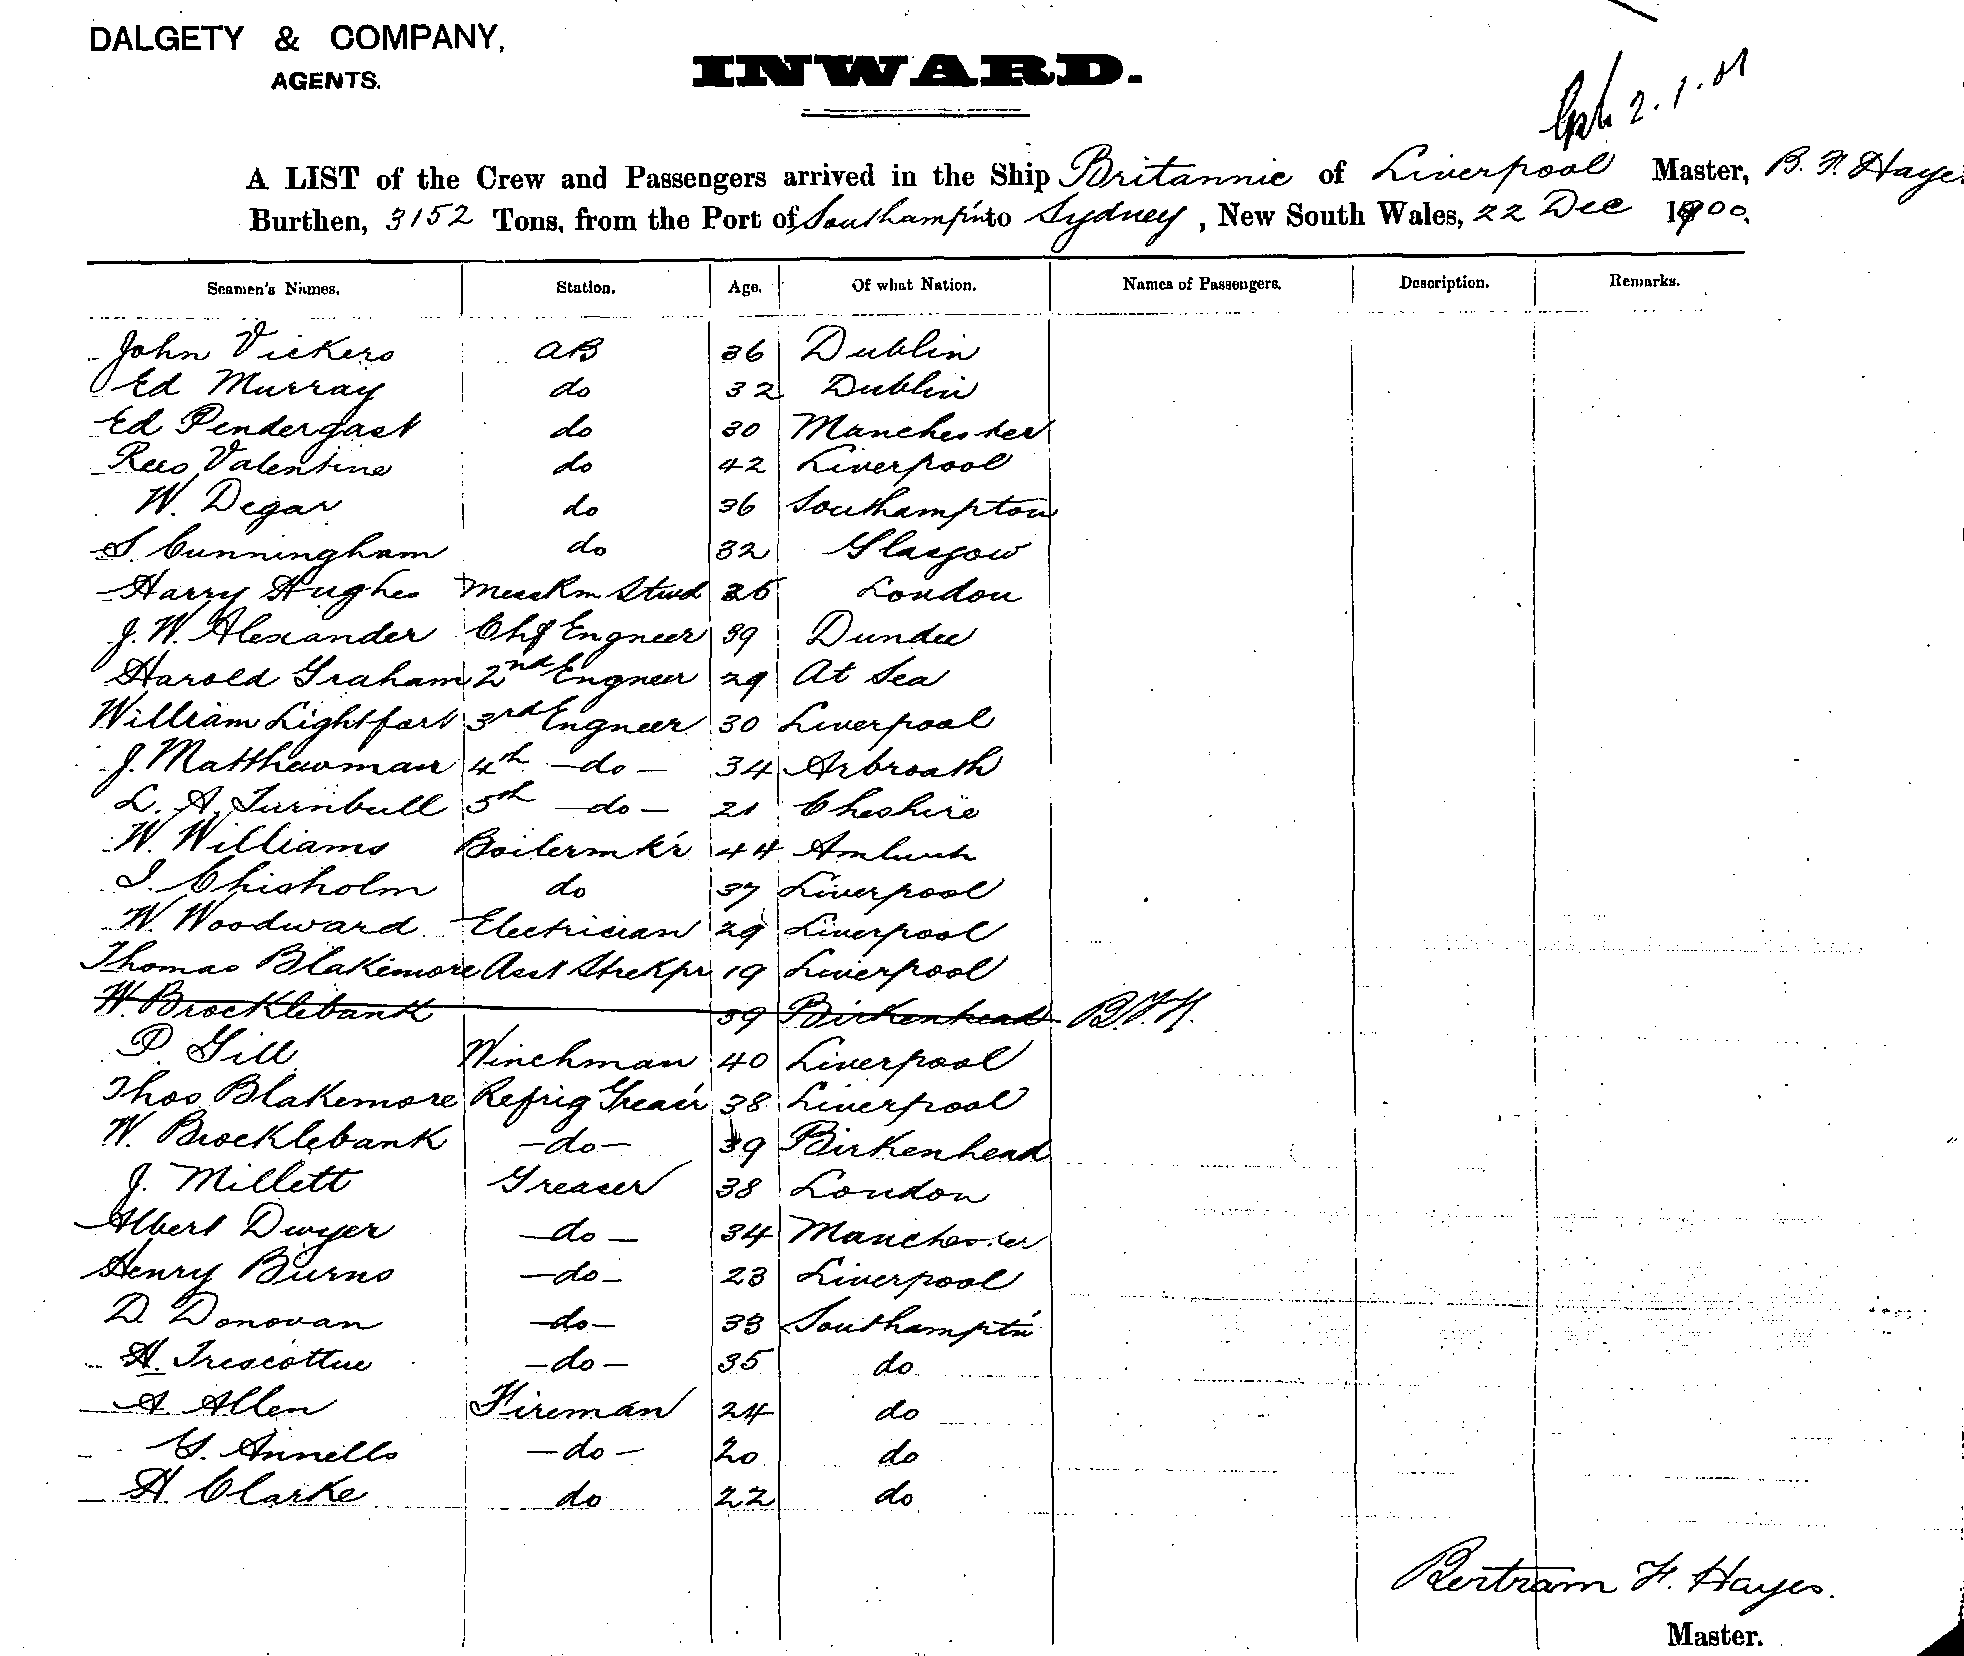 DALGETY & COMPANY,
AGENTS.
INWARD.
2.1.01
A LIST of the Crew and Passengers arrived in the Ship Britannic of Liverpool Master, B. F. Hayes
Burthen, 3152 Tons, from the Port of Southampt'n to Sydney, New South Wales, 22 Dec 1900.
Seamen's Names. Station. Age. Of what Nation. Names of Passengers. Description. Remarks.
John Vickers AB 36 Dublin
Ed Murray do 32 Dublin
Ed Pendergast do 30 Manchester
Rees Valentine do 42 Liverpool
W. Degar do 36 Southampton
S. Cunningham do 32 Glasgow
Harry Hughes MessRm Stwd 26 London
J. W. Alexander Chf Engneer 39 Dundee
Harold Graham 2nd Engneer 29 At Sea
William Lightfort 3rd Engneer 30 Liverpool
J. Matthewman 4th - do - 34 Arbroath
L. A. Turnbull 5th - do - 21 Cheshire
W. Williams Boilermk'r 44 Amlwch
I. Chisholm do 37 Liverpool
W. Woodward Electrician 29 Liverpool
Thomas Blakemore Asst Strekpr 19 Liverpool
W. Brocklebank 39 Birkenhead B.F.H.
P. Gill Winchman 40 Liverpool
Thos Blakemore Refrig Greas'r 38 Liverpool
W. Brocklebank - do - 39 Birkenhead
J. Millett Greaser 38 London
Albert Dwyer - do - 34 Manchester
Henry Burns - do - 23 Liverpool
D. Donovan - do - 33 Southampt'n
H. Trescottue - do - 35 do
A. Allen Fireman 24 do
G. Annells - do - 20 do
H Clarke do 22 do
Bertram F. Hayes.
Master.